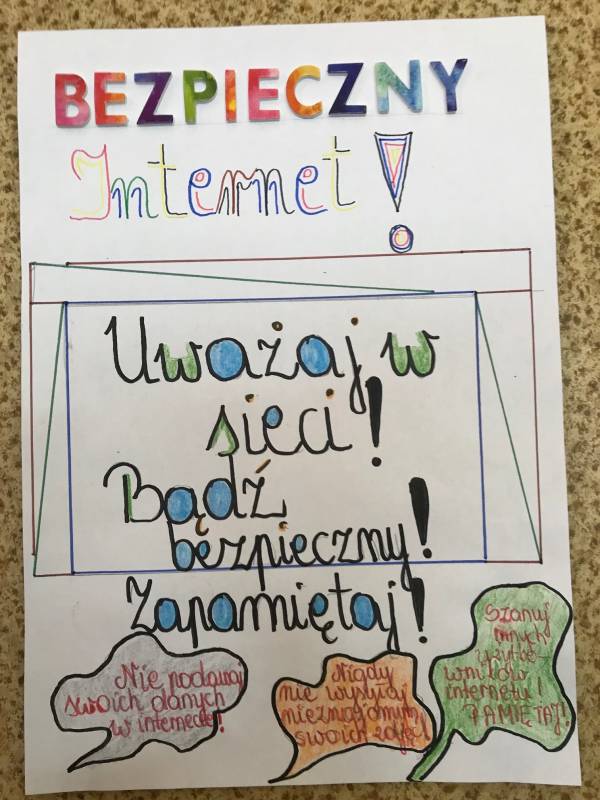 BEZPIECZNY
Internet!
Uważaj w
sieci!
Bądź
bezpieczny!
Zapamiętaj!
Nie podawaj
swoich danych
w internecie!
Nigdy
nie wysyłaj
nieznajomym
swoich zdjęć!
Szanuj
innych
użytko-
wników
internetu!
PAMIĘTAJ!